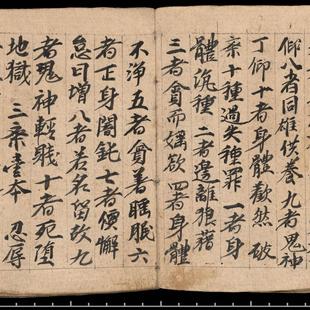 仰八者同雄供養九者鬼神
丁仰十者身體歡然破
十種過失種罪一者身
體沉種二者邊離狼藉
三者貪而婬欲四者身體
不淨五者貪善睡眠六
者正身闇鈍七者便懈
怠日增八者若名留故九
者鬼神輕賤十者死墮
地獄 三乘壹本 忍辱